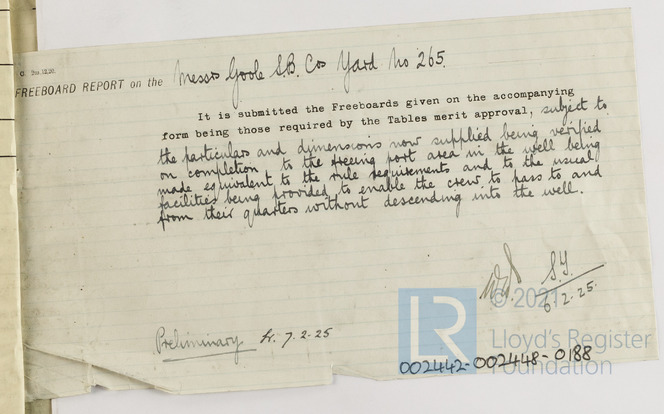 FREEBOARD REPORT on the Messrs Goole S.B. Cos Yard No 265.
It is submitted the Freeboards given on the accompanying
form being those required by the Tables merit approval, subject to
the particulars and dimensions now supplied being verified
on completion, to the freeing port area in the well being
made equivalent to the rule requirements and to the usual
facilities being provided to enable the crew to pass to and
from their quarters without descending into the well.
6.2.25.
Preliminary
7.2.25
© 2021
LR
Lloyd's Register
Foundation
002442-002448-0188